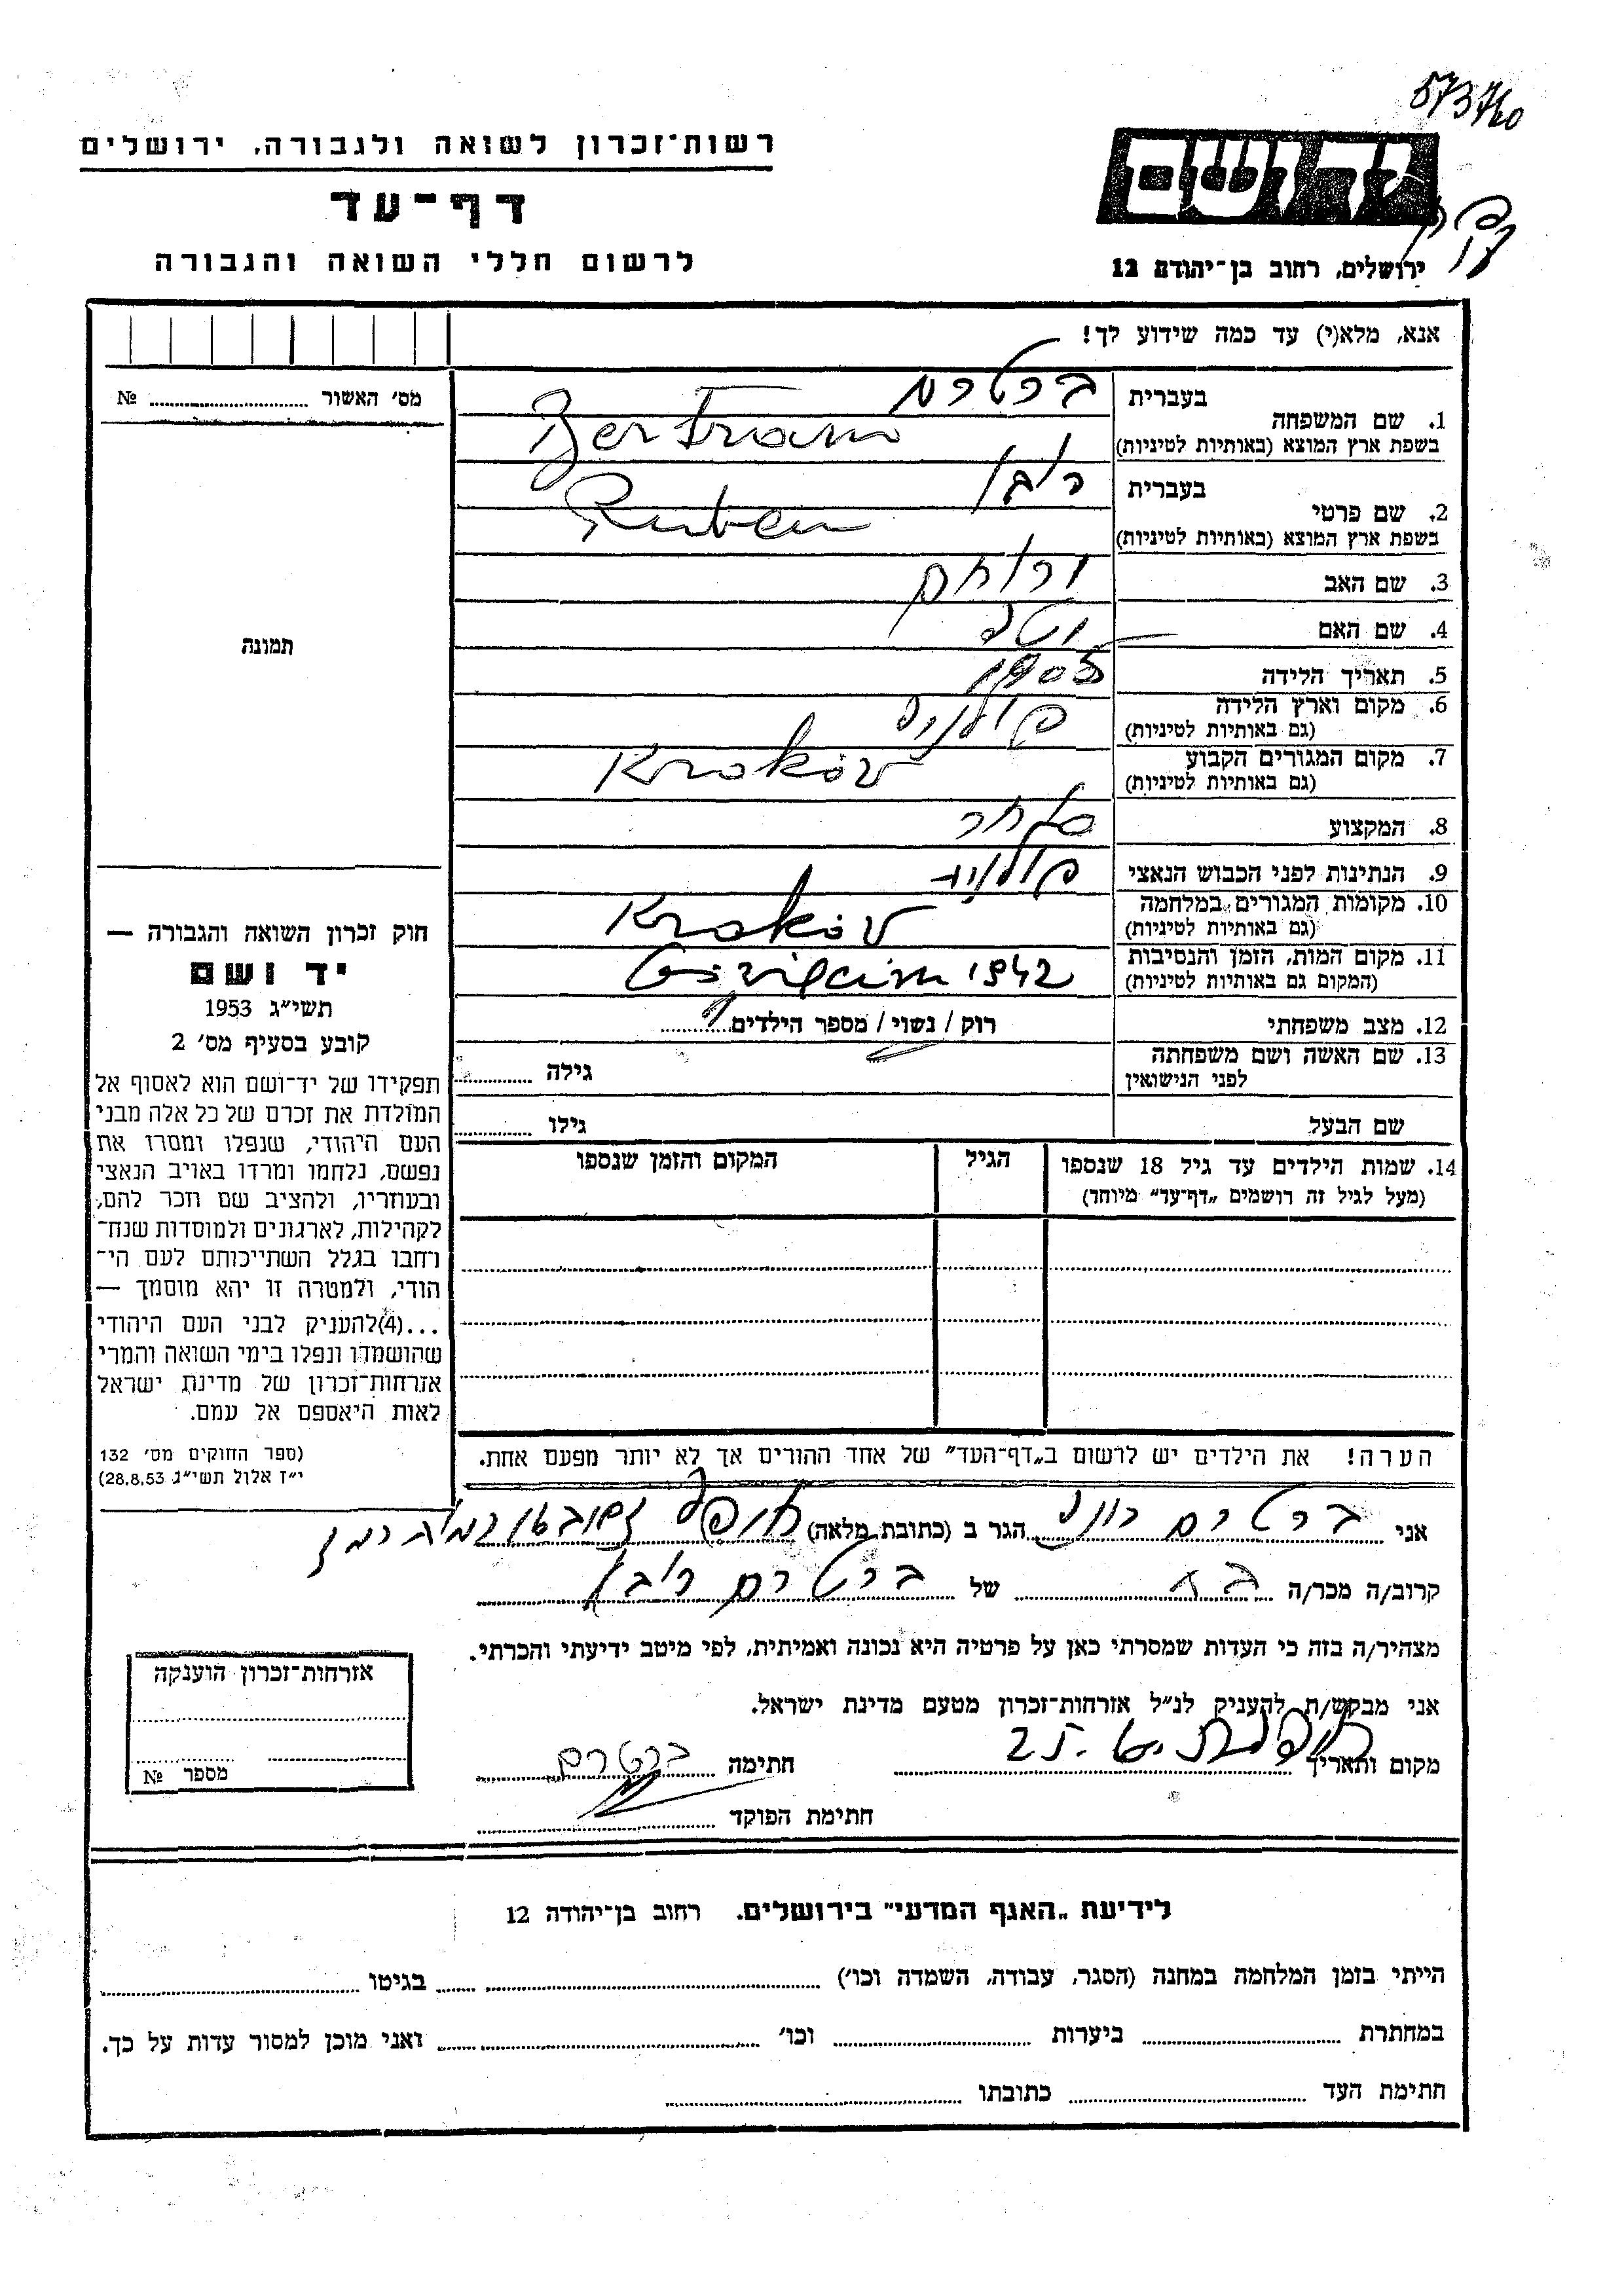 573760
רשות־זכרון לשואה ולגבורה, ירושלים
דף־עד
לרשום חללי השואה והגבורה
ידושם
ירושלים, רחוב בן־יהודה 12
אנא, מלא(י) עד כמה שידוע לך!
מס׳ האשור № 
1. שם המשפחה בעברית ברטרם
בשפת ארץ המוצא (באותיות לטיניות) Bertram
2. שם פרטי בעברית ריבן
בשפת ארץ המוצא (באותיות לטיניות) Ruben
3. שם האב ירוחם
4. שם האם יטה
5. תאריך הלידה 1905
6. מקום וארץ הלידה פולניה
(גם באותיות לטיניות)
7. מקום המגורים הקבוע Krakov
(גם באותיות לטיניות)
8. המקצוע סוחר
9. הנתינות לפני הכבוש הנאצי פולנית
10. מקומות המגורים במלחמה Krakov
(גם באותיות לטיניות)
11. מקום המות, הזמן והנסיבות 1942
(המקום גם באותיות לטיניות)
12. מצב משפחתי רוק / נשוי / מספר הילדים
13. שם האשה ושם משפחתה
לפני הנישואין גילה
שם הבעל גילו
14. שמות הילדים עד גיל 18 שנספו הגיל המקום והזמן שנספו
(מעל לגיל זה רושמים „דף־עד״ מיוחד)
הערה! את הילדים יש לרשום ב„דף־העד״ של אחד ההורים אך לא יותר מפעם אחת.
תמונה
חוק זכרון השואה והגבורה —
יד ושם
תשי״ג 1953
קובע בסעיף מס׳ 2
תפקידו של יד־ושם הוא לאסוף אל
המולדת את זכרם של כל אלה מבני
העם היהודי, שנפלו ומסרו את
נפשם, נלחמו ומרדו באויב הנאצי
ובעוזריו, ולהציב שם וזכר להם,
לקהילות, לארגונים ולמוסדות שנח־
רחבו בגלל השתייכותם לעם הי־
הודי, ולמטרה זו יהא מוסמך —
...(4)להעניק לבני העם היהודי
שהושמדו ונפלו בימי השואה והמרי
אזרחות־זכרון של מדינת ישראל
לאות היאספם אל עמם.
(ספר החוקים מס׳ 132
י״ז אלול תשי״ג 28.8.53)
אני ברטרם רוזה הגר ב (כתובת מלאה) חיפה
קרוב/ה מכר/ה בת של ברטרם ריבן
מצהיר/ה בזה כי העדות שמסרתי כאן על פרטיה היא נכונה ואמיתית, לפי מיטב ידיעתי והכרתי.
אני מבקש/ת להעניק לנ״ל אזרחות־זכרון מטעם מדינת ישראל.
מקום ותאריך חתימה ברטרם
חתימת הפוקד
אזרחות־זכרון הוענקה
מספר №
לידיעת „האגף המדעי״ בירושלים. רחוב בן־יהודה 12
הייתי בזמן המלחמה במחנה (הסגר, עבודה, השמדה וכו׳) בגיטו
במחתרת ביערות וכו׳ ואני מוכן למסור עדות על כך.
חתימת העד כתובתו